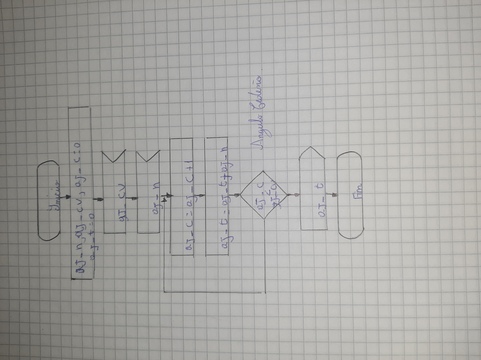 Inicio
aJ-n, aJ-cv, aJ-c=0
aJ-t=0
aJ-cv
aJ-n
aJ-c = aJ-c+1
aJ-t = aJ-t+aJ-n
aJ-c
aJ-cv
Angulo
aJ-t
Fin